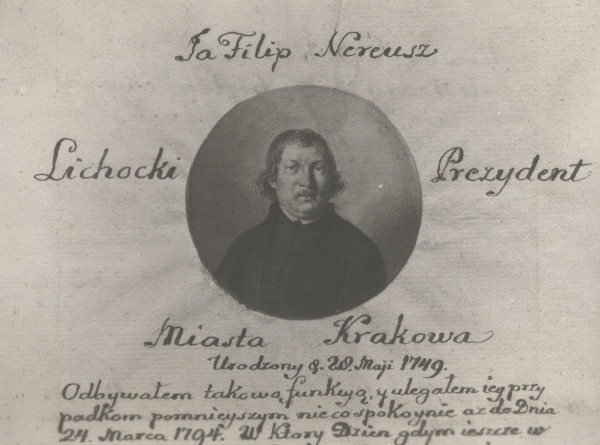 Ja Filip Nereusz
Lichocki Prezydent
Miasta Krakowa
Urodzony d. 28. Maji 1749.
Odbywałem takową funkyą, y ulegałem iey przy
padkom pomnieyszym nieco spokoynie aż do Dnia
24. Marca 1794. W Ktory Dzien gdym ieszcze w